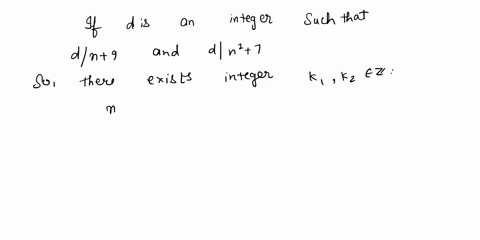 If d is an integer such that
d/n+9 and d|n²+7
So, there exists integer k₁, k₂ ∈ ℤ:
n